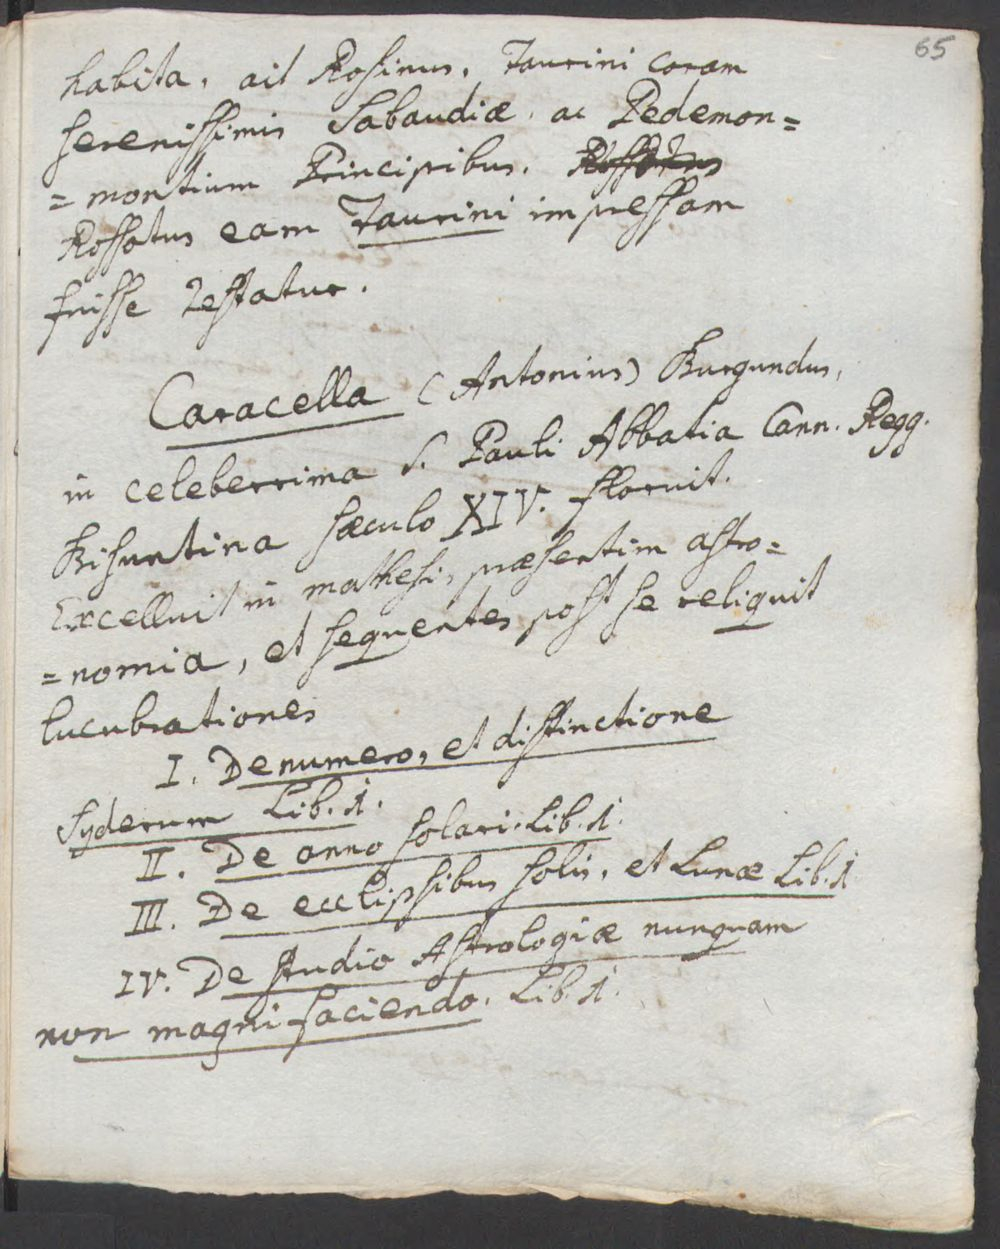 65
habita, ait Rosinus, Taurini coram
serenissimis Sabaudiæ, ac Pedemon=
=montium Principibus.
Rossotus eam Taurini impressam
fuisse testatur.
Caracella (Antonius) Burgundus,
in celeberrima S. Pauli Abbatia Cann. Regg.
Bisuntina sæculo XIV. floruit.
Excelluit in mathesi, præsertim astro=
=nomia, et sequentes post se reliquit
lucubrationes
I. De numero, et distinctione
syderum Lib. 1.
II. De anno solari. Lib. 1.
III. De ecclipsibus solis, et Lunæ Lib. 1.
IV. De studio Astrologiæ nunquam
non magni faciendo. Lib. 1.